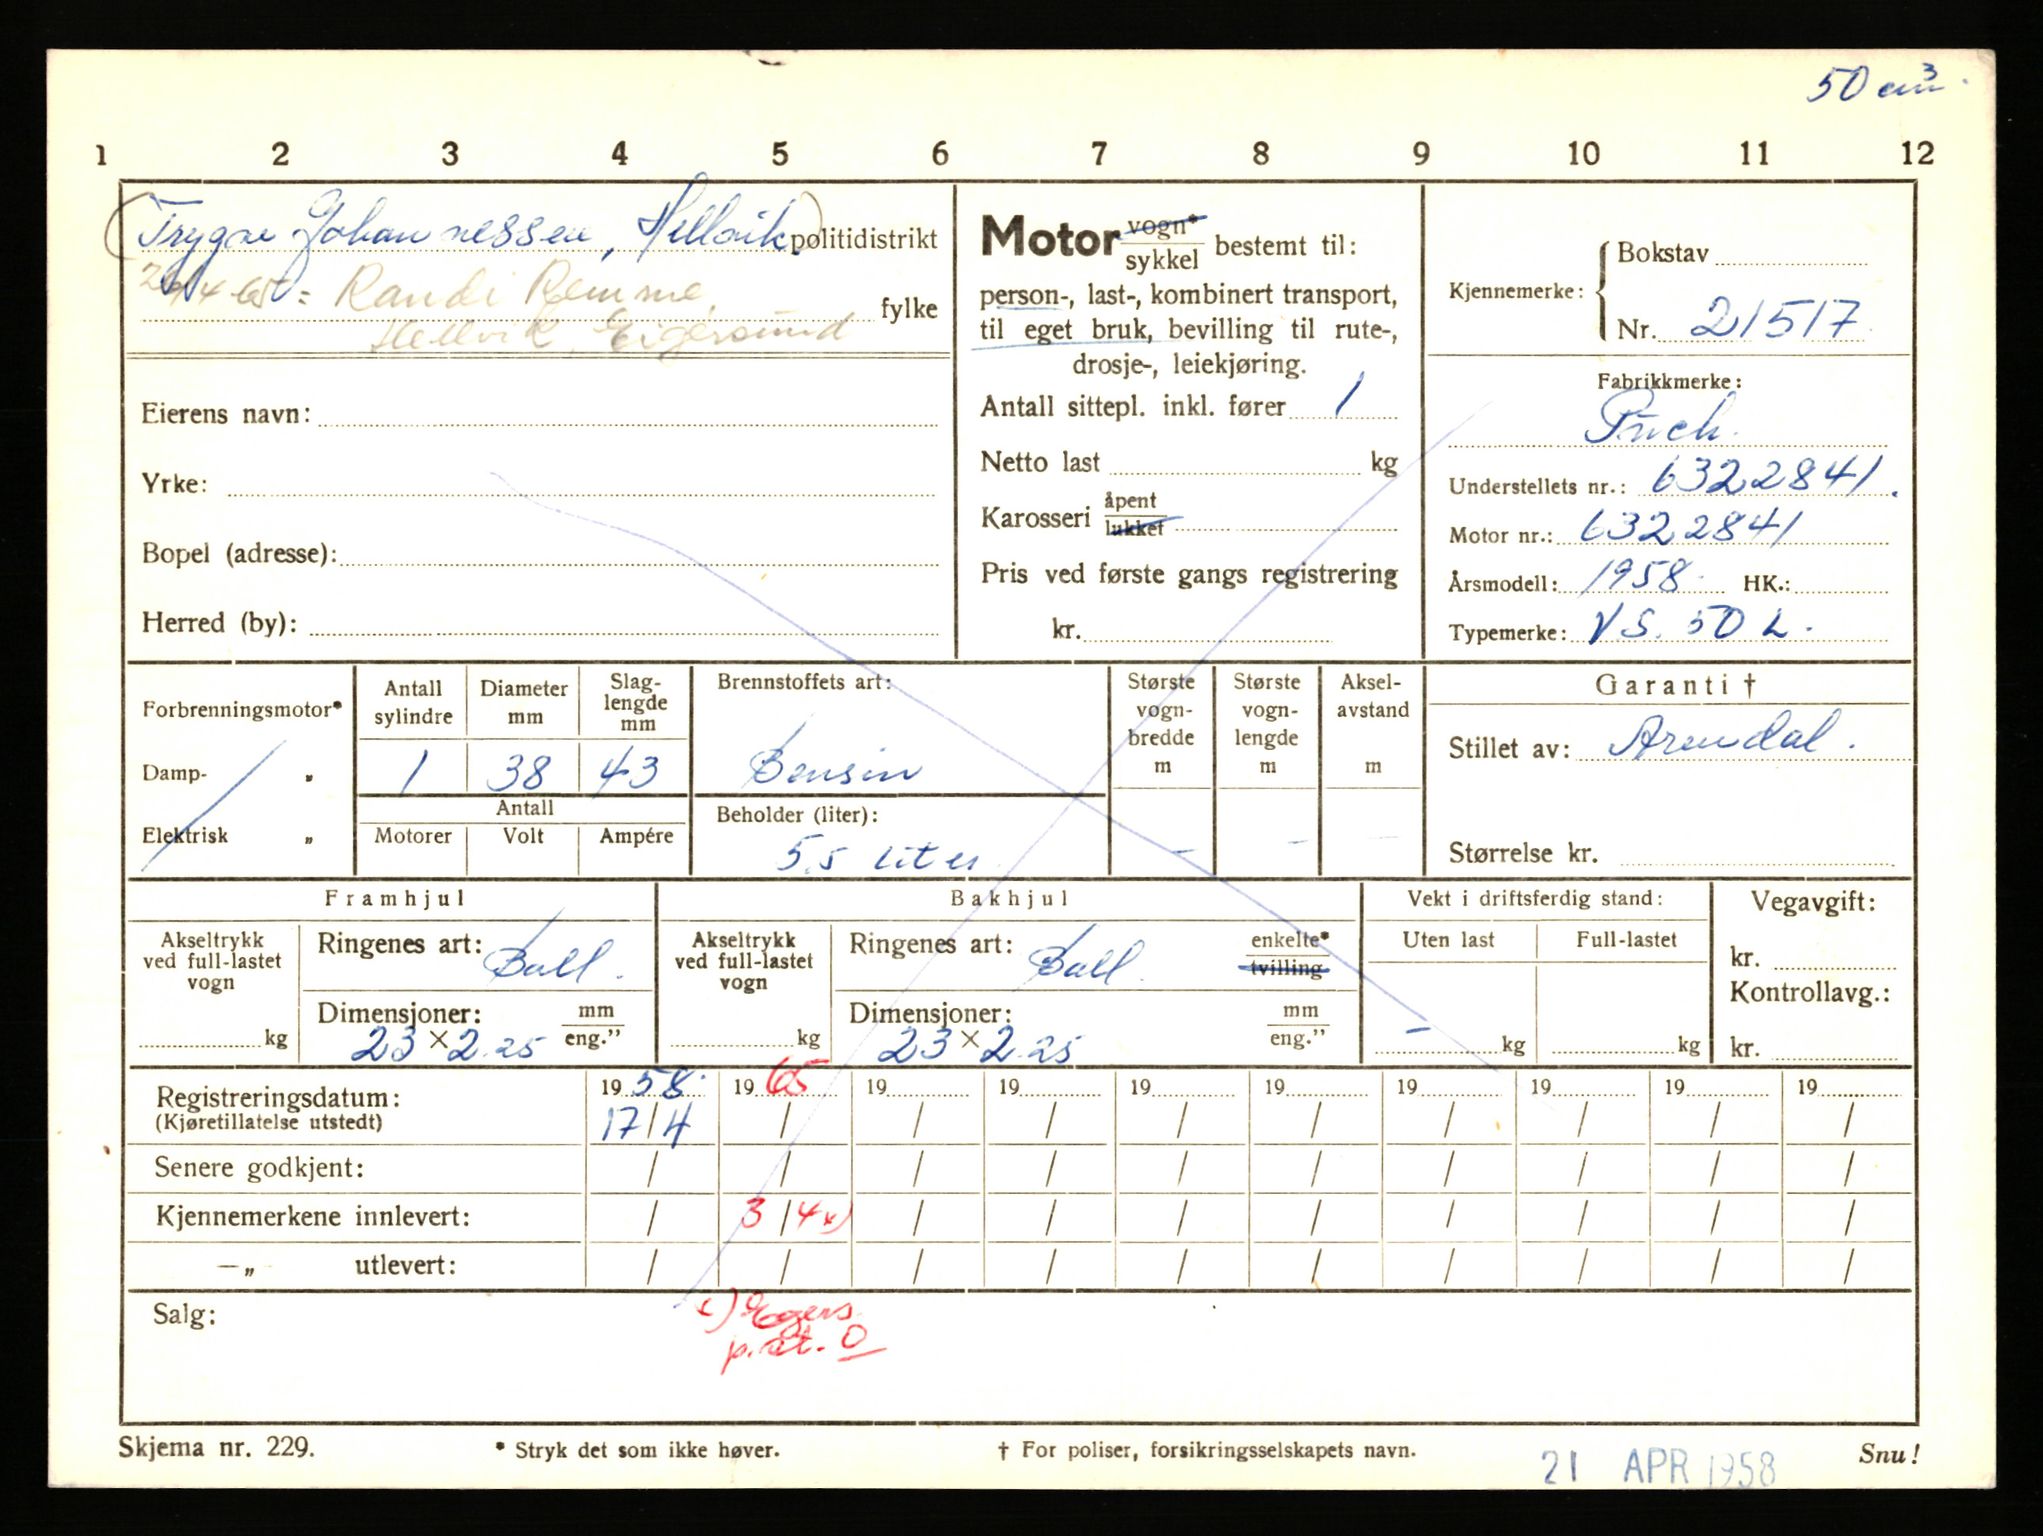 50 cm3.
1 2 3 4 5 6 7 8 9 10 11 12
(Trygve Johannessen, Hellvik.) politidistrikt
26/4-65: Randi Remme, fylke
Hellvik, Eigersund
Eierens navn:
Yrke:
Bopel (adresse):
Herred (by):
Motor vogn* sykkel bestemt til:
person-, last-, kombinert transport,
til eget bruk, bevilling til rute-,
drosje-, leiekjøring.
Antall sittepl. inkl. fører 1
Netto last kg
Karosseri åpent lukket
Pris ved første gangs registrering
kr.
Kjennemerke: Bokstav
Nr. 21517
Fabrikkmerke:
Puch.
Understellets nr.: 6322841.
Motor nr.: 6322841
Årsmodell: 1958. HK.:
Typemerke: VS. 50 L.
Forbrenningsmotor*
Damp- „
Elektrisk „
Antall sylindre Diameter mm Slag-lengde mm
1 38 43
Antall
Motorer Volt Ampére
Brennstoffets art:
Bensin
Beholder (liter):
5,5 liter
Største vogn-bredde m
Største vogn-lengde m
Aksel-avstand m
- - -
Garanti †
Stillet av: Arendal.
Størrelse kr.
Framhjul
Akseltrykk ved full-lastet vogn
kg
Ringenes art: Ball.
Dimensjoner: mm eng."
23 × 2.25
Bakhjul
Akseltrykk ved full-lastet vogn
kg
Ringenes art: Ball. enkelte* tvilling
Dimensjoner: mm eng."
23 × 2.25
Vekt i driftsferdig stand:
Uten last Full-lastet
- kg kg
Vegavgift:
kr.
Kontrollavg.:
kr.
Registreringsdatum: 19 58. 19 65 19 19 19 19 19 19 19 19
(Kjøretillatelse utstedt) 17/4 / / / / / / / / /
Senere godkjent: / / / / / / / / / /
Kjennemerkene innlevert: / 3/4 x) / / / / / / / /
—„ utlevert: / / / / / / / / / /
Salg:
x) Egers
p.st. O
Skjema nr. 229. * Stryk det som ikke høver. † For poliser, forsikringsselskapets navn. 21 APR 1958 Snu!